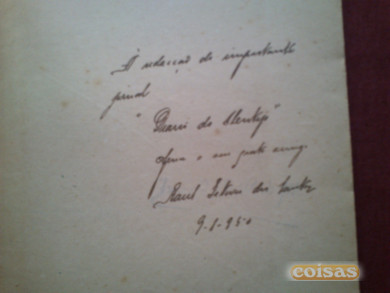 À redacção do importante
jornal
"Diario do Alentejo"
oferece o seu grato amigo
Raul Esteves dos Santos
9-1-950
coisas